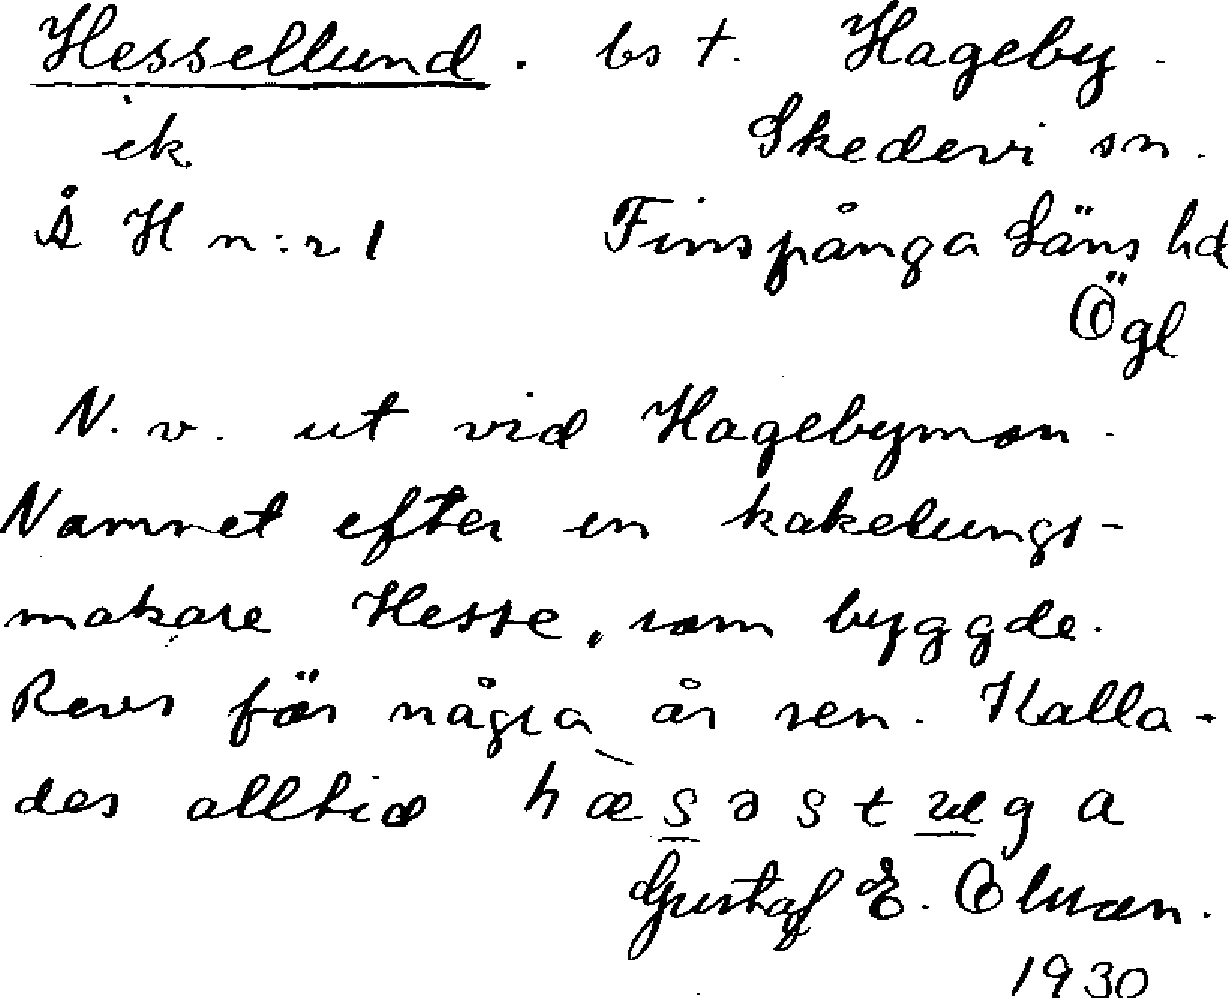 Hessellund. bs †. Hageby.
ek. Skedevi sn.
Å H n:r 1 Finspånga Läns hd
Ögl
N. v. ut vid Hagebyman.
Namnet efter en kakelungs-
makare Hesse, som byggde.
Revs för några år sen. Kalla-
des alltid hæsəstuga
Gustaf E. Olsson.
1930